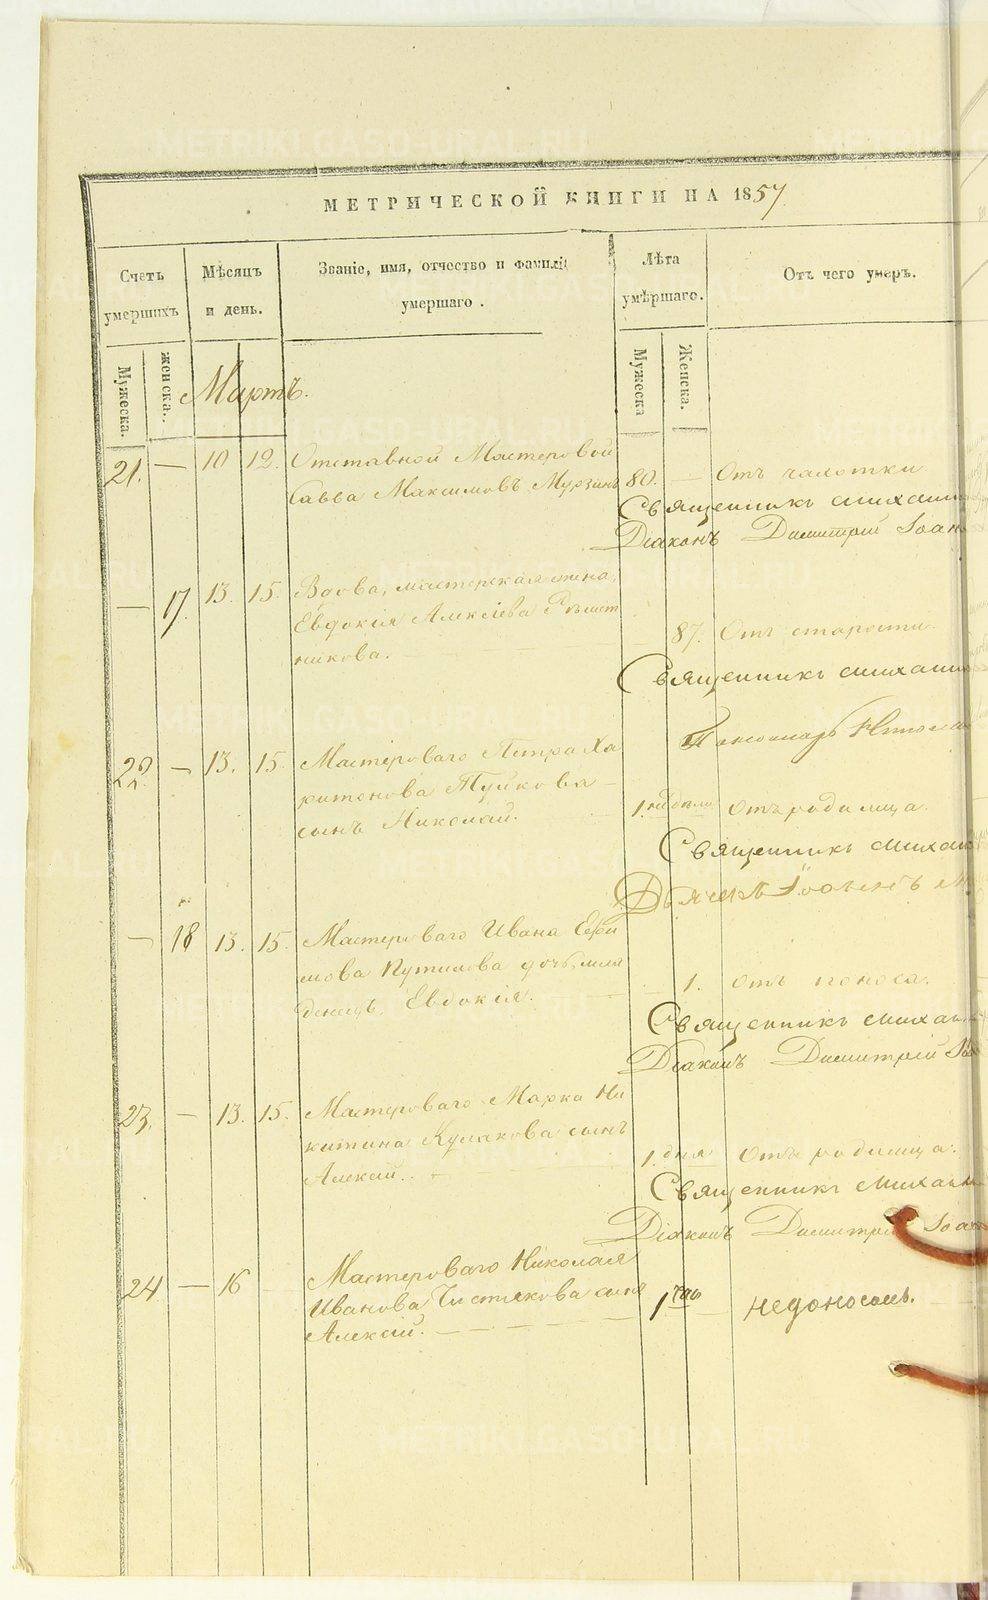 МЕТРИЧЕСКОЙ КНИГИ НА 1857
Счетъ умершихъ
Мѣсяцъ и день.
Званіе, имя, отчество и фамилія умершаго.
Лѣта умѣршаго.
Отъ чего умеръ.
Мужеска.
женска.
Мужеска
Женска.
Мартъ.
21. — 10 12. Отставной Мастеровой
Савва Максимовъ Мурзинъ 80. — Отъ чахотки
Священникъ Михаил
Діаконъ Димитрій Іоан
— 17. 13. 15. Вдова, мастерская жена,
Евдокія Алексѣева
никова. 87. Отъ старости.
Священникъ Михаил
Пономарь
22. — 13. 15. Мастероваго Петра Ха
ритонова Туйкова
сынъ Николай. 1. недѣли Отъ родимца.
Священникъ Михаи
— 18 13. 15. Мастероваго Ивана Ефи
мова Путилова дочь, мла
денецъ, Евдокія. 1. Отъ поноса.
Священникъ Михаил
Діаконъ Димитрій Іоа
23. — 13. 15. Мастероваго Марка Ни
китина Кулакова сынъ
Алексій. 1. дня Отъ родимца.
Священникъ Михаил
Діаконъ Димитрій Іоан
24 — 16 Мастероваго Николая
Иванова Чистякова сынъ
Алексій. 1 недоносокъ.
METRIKI.GASO-URAL.RU